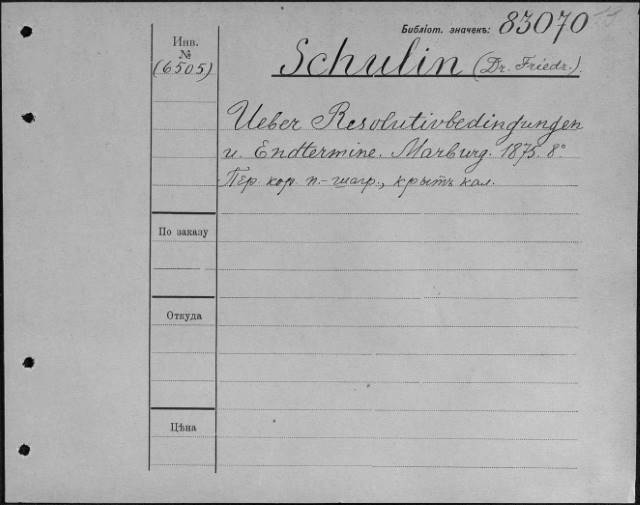 Библіот. значекъ: 83070
Инв. №
(6505)
Schulin (Dr. Friedr.).
Ueber Resolutivbedingungen
u. Endtermine. Marburg. 1875. 8°
Пер. кор. п.-шагр., крытъ кал.
По заказу
Откуда
Цѣна